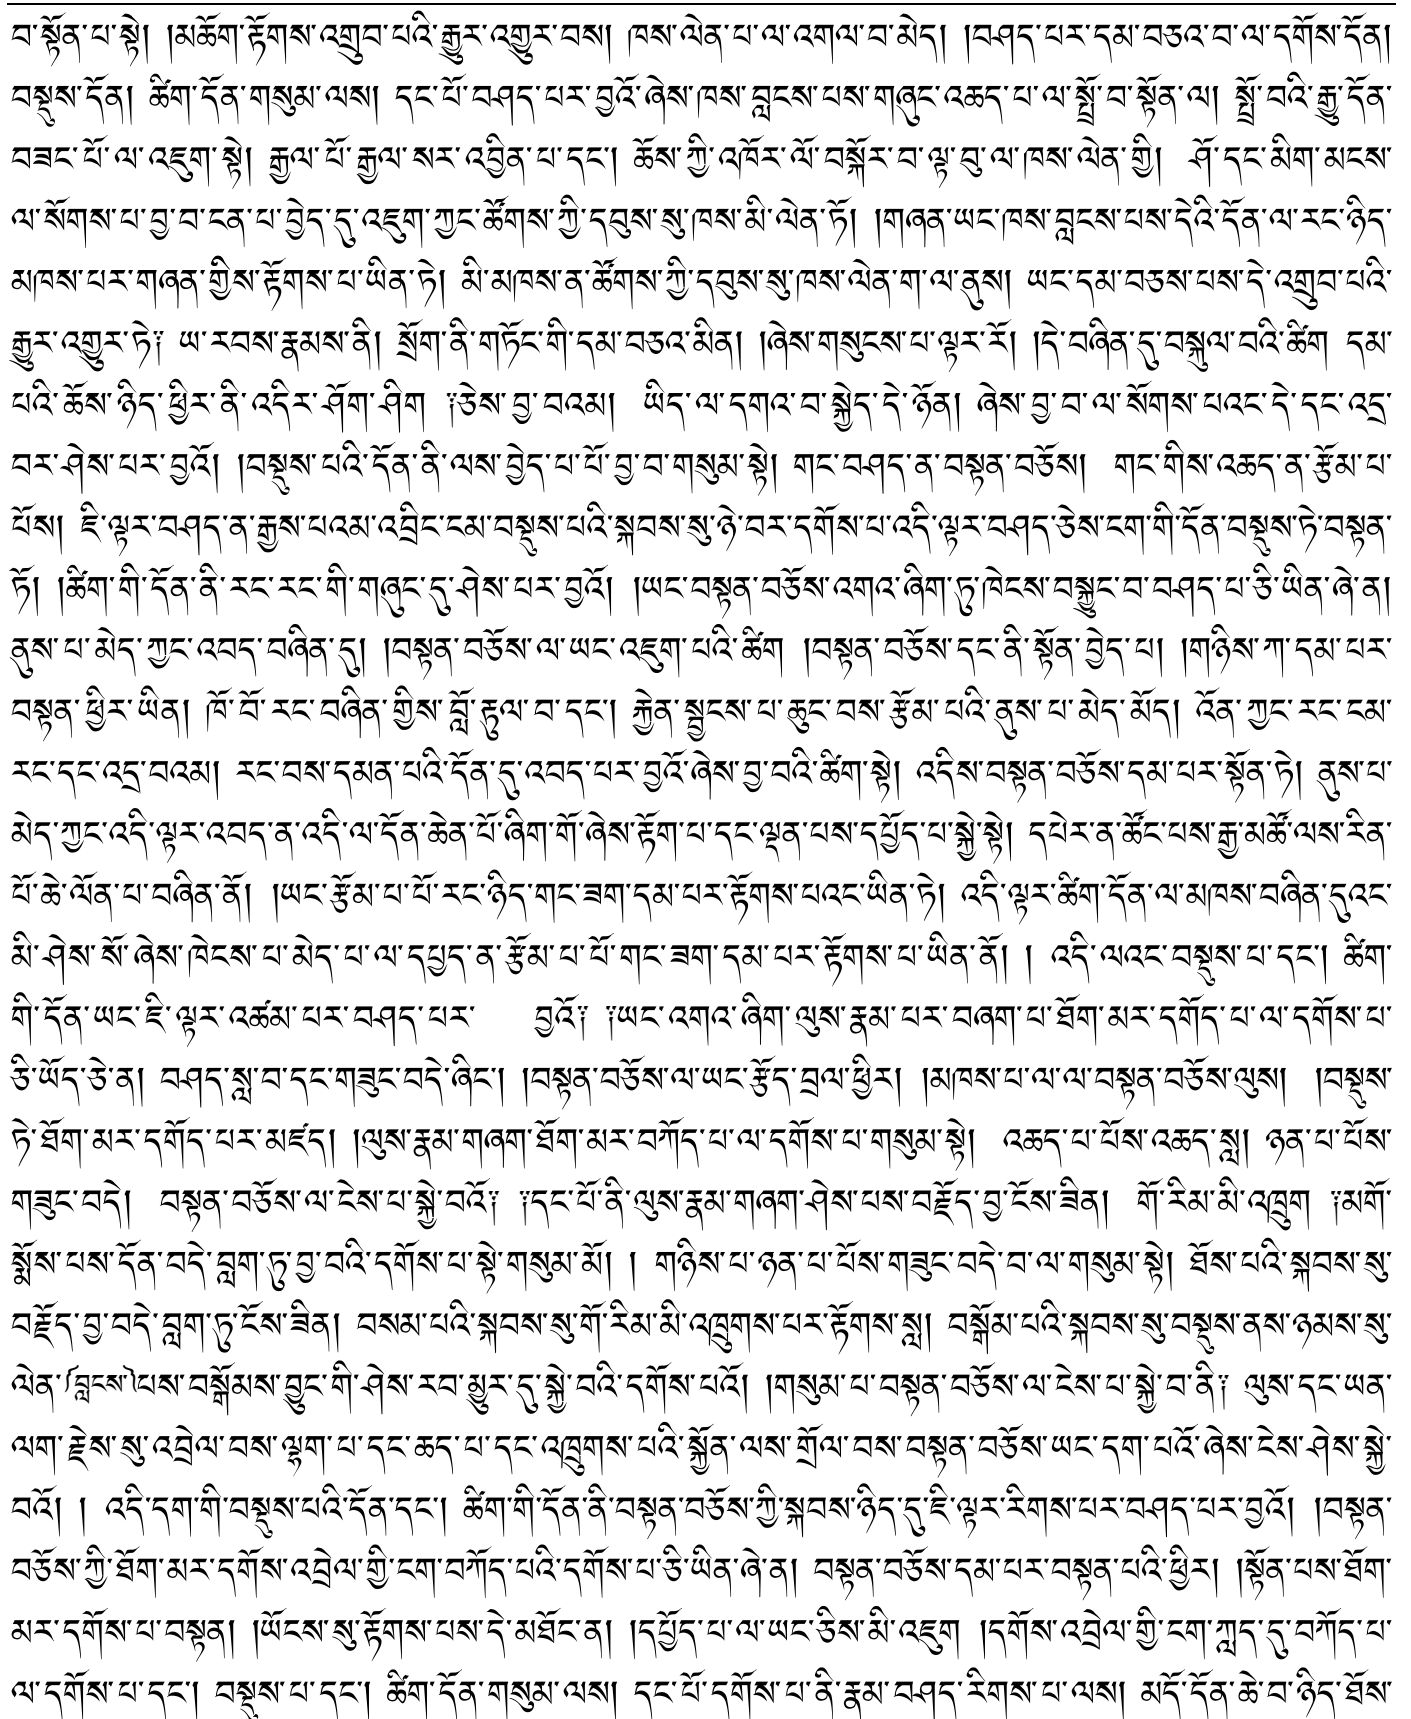 བ་སྟོན་པ་སྟེ། །མཆོག་རྟོགས་འགྲུབ་པའི་རྒྱུར་འགྱུར་བས། ཁས་ལེན་པ་ལ་འགལ་བ་མེད། །བཤད་པར་དམ་བཅའ་བ་ལ་དགོས་དོན།
བསྡུས་དོན། ཚིག་དོན་གསུམ་ལས། དང་པོ་བཤད་པར་བྱའོ་ཞེས་ཁས་བླངས་པས་གཞུང་འཆད་པ་ལ་སྤྲོ་བ་སྟོན་ལ། སྤྲོ་བའི་རྒྱུ་དོན་
བཟང་པོ་ལ་འཇུག་སྟེ། རྒྱལ་པོ་རྒྱལ་སར་འབྱིན་པ་དང་། ཆོས་ཀྱི་འཁོར་ལོ་བསྐོར་བ་ལྟ་བུ་ལ་ཁས་ལེན་གྱི། ཤོ་དང་མིག་མངས་
ལ་སོགས་པ་བྱ་བ་ངན་པ་བྱེད་དུ་འཇུག་ཀྱང་ཚོགས་ཀྱི་དབུས་སུ་ཁས་མི་ལེན་ཏོ། །གཞན་ཡང་ཁས་བླངས་པས་དེའི་དོན་ལ་རང་ཉིད་
མཁས་པར་གཞན་གྱིས་རྟོགས་པ་ཡིན་ཏེ། མི་མཁས་ན་ཚོགས་ཀྱི་དབུས་སུ་ཁས་ལེན་ག་ལ་ནུས། ཡང་དམ་བཅས་པས་དེ་འགྲུབ་པའི་
རྒྱུར་འགྱུར་ཏེ༑ ཡ་རབས་རྣམས་ནི། སྲོག་ནི་གཏོང་གི་དམ་བཅའ་མིན། །ཞེས་གསུངས་པ་ལྟར་རོ། །དེ་བཞིན་དུ་བསྐུལ་བའི་ཚིག དམ་
པའི་ཆོས་ཉིད་ཕྱིར་ནི་འདིར་ཤོག་ཤིག ༑ཅེས་བྱ་བའམ། ཡིད་ལ་དགའ་བ་སྐྱེད་དེ་ཉོན། ཞེས་བྱ་བ་ལ་སོགས་པའང་དེ་དང་འདྲ་
བར་ཤེས་པར་བྱའོ། །བསྡུས་པའི་དོན་ནི་ལས་བྱེད་པ་པོ་བྱ་བ་གསུམ་སྟེ། གང་བཤད་ན་བསྟན་བཅོས། གང་གིས་འཆད་ན་རྩོམ་པ་
པོས། ཇི་ལྟར་བཤད་ན་རྒྱས་པའམ་འབྲིང་ངམ་བསྡུས་པའི་སྐབས་སུ་ཉེ་བར་དགོས་པ་འདི་ལྟར་བཤད་ཅེས་ངག་གི་དོན་བསྡུས་ཏེ་བསྟན་
ཏོ། །ཚིག་གི་དོན་ནི་རང་རང་གི་གཞུང་དུ་ཤེས་པར་བྱའོ། །ཡང་བསྟན་བཅོས་འགའ་ཞིག་ཏུ་ཁེངས་བསྐྱུང་བ་བཤད་པ་ཅི་ཡིན་ཞེ་ན།
ནུས་པ་མེད་ཀྱང་འབད་བཞིན་དུ། །བསྟན་བཅོས་ལ་ཡང་འཇུག་པའི་ཚིག །བསྟན་བཅོས་དང་ནི་སྟོན་བྱེད་པ། །གཉིས་ཀ་དམ་པར་
བསྟན་ཕྱིར་ཡིན། ཁོ་བོ་རང་བཞིན་གྱིས་བློ་རྟུལ་བ་དང་། རྐྱེན་སྦྱངས་པ་ཆུང་བས་རྩོམ་པའི་ནུས་པ་མེད་མོད། འོན་ཀྱང་རང་ངམ་
རང་དང་འདྲ་བའམ། རང་བས་དམན་པའི་དོན་དུ་འབད་པར་བྱའོ་ཞེས་བྱ་བའི་ཚིག་སྟེ། འདིས་བསྟན་བཅོས་དམ་པར་སྟོན་ཏེ། ནུས་པ་
མེད་ཀྱང་འདི་ལྟར་འབད་ན་འདི་ལ་དོན་ཆེན་པོ་ཞིག་གོ་ཞེས་རྟོག་པ་དང་ལྡན་པས་དཔྱོད་པ་སྐྱེ་སྟེ། དཔེར་ན་ཚོང་པས་རྒྱ་མཚོ་ལས་རིན་
པོ་ཆེ་ལོན་པ་བཞིན་ནོ། །ཡང་རྩོམ་པ་པོ་རང་ཉིད་གང་ཟག་དམ་པར་རྟོགས་པའང་ཡིན་ཏེ། འདི་ལྟར་ཚིག་དོན་ལ་མཁས་བཞིན་དུའང་
མི་ཤེས་སོ་ཞེས་ཁེངས་པ་མེད་པ་ལ་དཔྱད་ན་རྩོམ་པ་པོ་གང་ཟག་དམ་པར་རྟོགས་པ་ཡིན་ནོ། ། འདི་ལའང་བསྡུས་པ་དང་། ཚིག་
གི་དོན་ཡང་ཇི་ལྟར་འཚམ་པར་བཤད་པར་ བྱའོ༑ ༑ཡང་འགའ་ཞིག་ལུས་རྣམ་པར་བཞག་པ་ཐོག་མར་དགོད་པ་ལ་དགོས་པ་
ཅི་ཡོད་ཅེ་ན། བཤད་སླ་བ་དང་གཟུང་བདེ་ཞིང་། །བསྟན་བཅོས་ལ་ཡང་རྩོད་བྲལ་ཕྱིར། །མཁས་པ་ལ་ལ་བསྟན་བཅོས་ལུས། །བསྡུས་
ཏེ་ཐོག་མར་དགོད་པར་མཛད། །ལུས་རྣམ་གཞག་ཐོག་མར་བཀོད་པ་ལ་དགོས་པ་གསུམ་སྟེ། འཆད་པ་པོས་འཆད་སླ། ཉན་པ་པོས་
གཟུང་བདེ། བསྟན་བཅོས་ལ་ངེས་པ་སྐྱེ་བའོ༑ ༑དང་པོ་ནི་ལུས་རྣམ་གཞག་ཤེས་པས་བརྗོད་བྱ་ངོས་ཟིན། གོ་རིམ་མི་འཁྲུག ༑མགོ་
སྨོས་པས་དོན་བདེ་བླག་ཏུ་བྱ་བའི་དགོས་པ་སྟེ་གསུམ་མོ། ། གཉིས་པ་ཉན་པ་པོས་གཟུང་བདེ་བ་ལ་གསུམ་སྟེ། ཐོས་པའི་སྐབས་སུ་
བརྗོད་བྱ་བདེ་བླག་ཏུ་ངོས་ཟིན། བསམ་པའི་སྐབས་སུ་གོ་རིམ་མི་འཁྲུགས་པར་རྟོགས་སླ། བསྒོམ་པའི་སྐབས་སུ་བསྡུས་ནས་ཉམས་སུ་
ལེན་༼བླངས་༽པས་བསྒོམས་བྱུང་གི་ཤེས་རབ་མྱུར་དུ་སྐྱེ་བའི་དགོས་པའོ། །གསུམ་པ་བསྟན་བཅོས་ལ་ངེས་པ་སྐྱེ་བ་ནི༑ ལུས་དང་ཡན་
ལག་རྗེས་སུ་འབྲེལ་བས་ལྷག་པ་དང་ཆད་པ་དང་འཁྲུགས་པའི་སྐྱོན་ལས་གྲོལ་བས་བསྟན་བཅོས་ཡང་དག་པའོ་ཞེས་ངེས་ཤེས་སྐྱེ་
བའོ། ། འདི་དག་གི་བསྡུས་པའི་དོན་དང་། ཚིག་གི་དོན་ནི་བསྟན་བཅོས་ཀྱི་སྐབས་ཉིད་དུ་ཇི་ལྟར་རིགས་པར་བཤད་པར་བྱའོ། །བསྟན་
བཅོས་ཀྱི་ཐོག་མར་དགོས་འབྲེལ་གྱི་ངག་བཀོད་པའི་དགོས་པ་ཅི་ཡིན་ཞེ་ན། བསྟན་བཅོས་དམ་པར་བསྟན་པའི་ཕྱིར། །སྟོན་པས་ཐོག་
མར་དགོས་པ་བསྟན། །ཡོངས་སུ་རྟོགས་པས་དེ་མཐོང་ན། །དཔྱོད་པ་ལ་ཡང་ཅིས་མི་འཇུག །དགོས་འབྲེལ་གྱི་ངག་ཀླད་དུ་བཀོད་པ་
ལ་དགོས་པ་དང་། བསྡུས་པ་དང་། ཚིག་དོན་གསུམ་ལས། དང་པོ་དགོས་པ་ནི་རྣམ་བཤད་རིགས་པ་ལས། མདོ་དོན་ཆེ་བ་ཉིད་ཐོས་